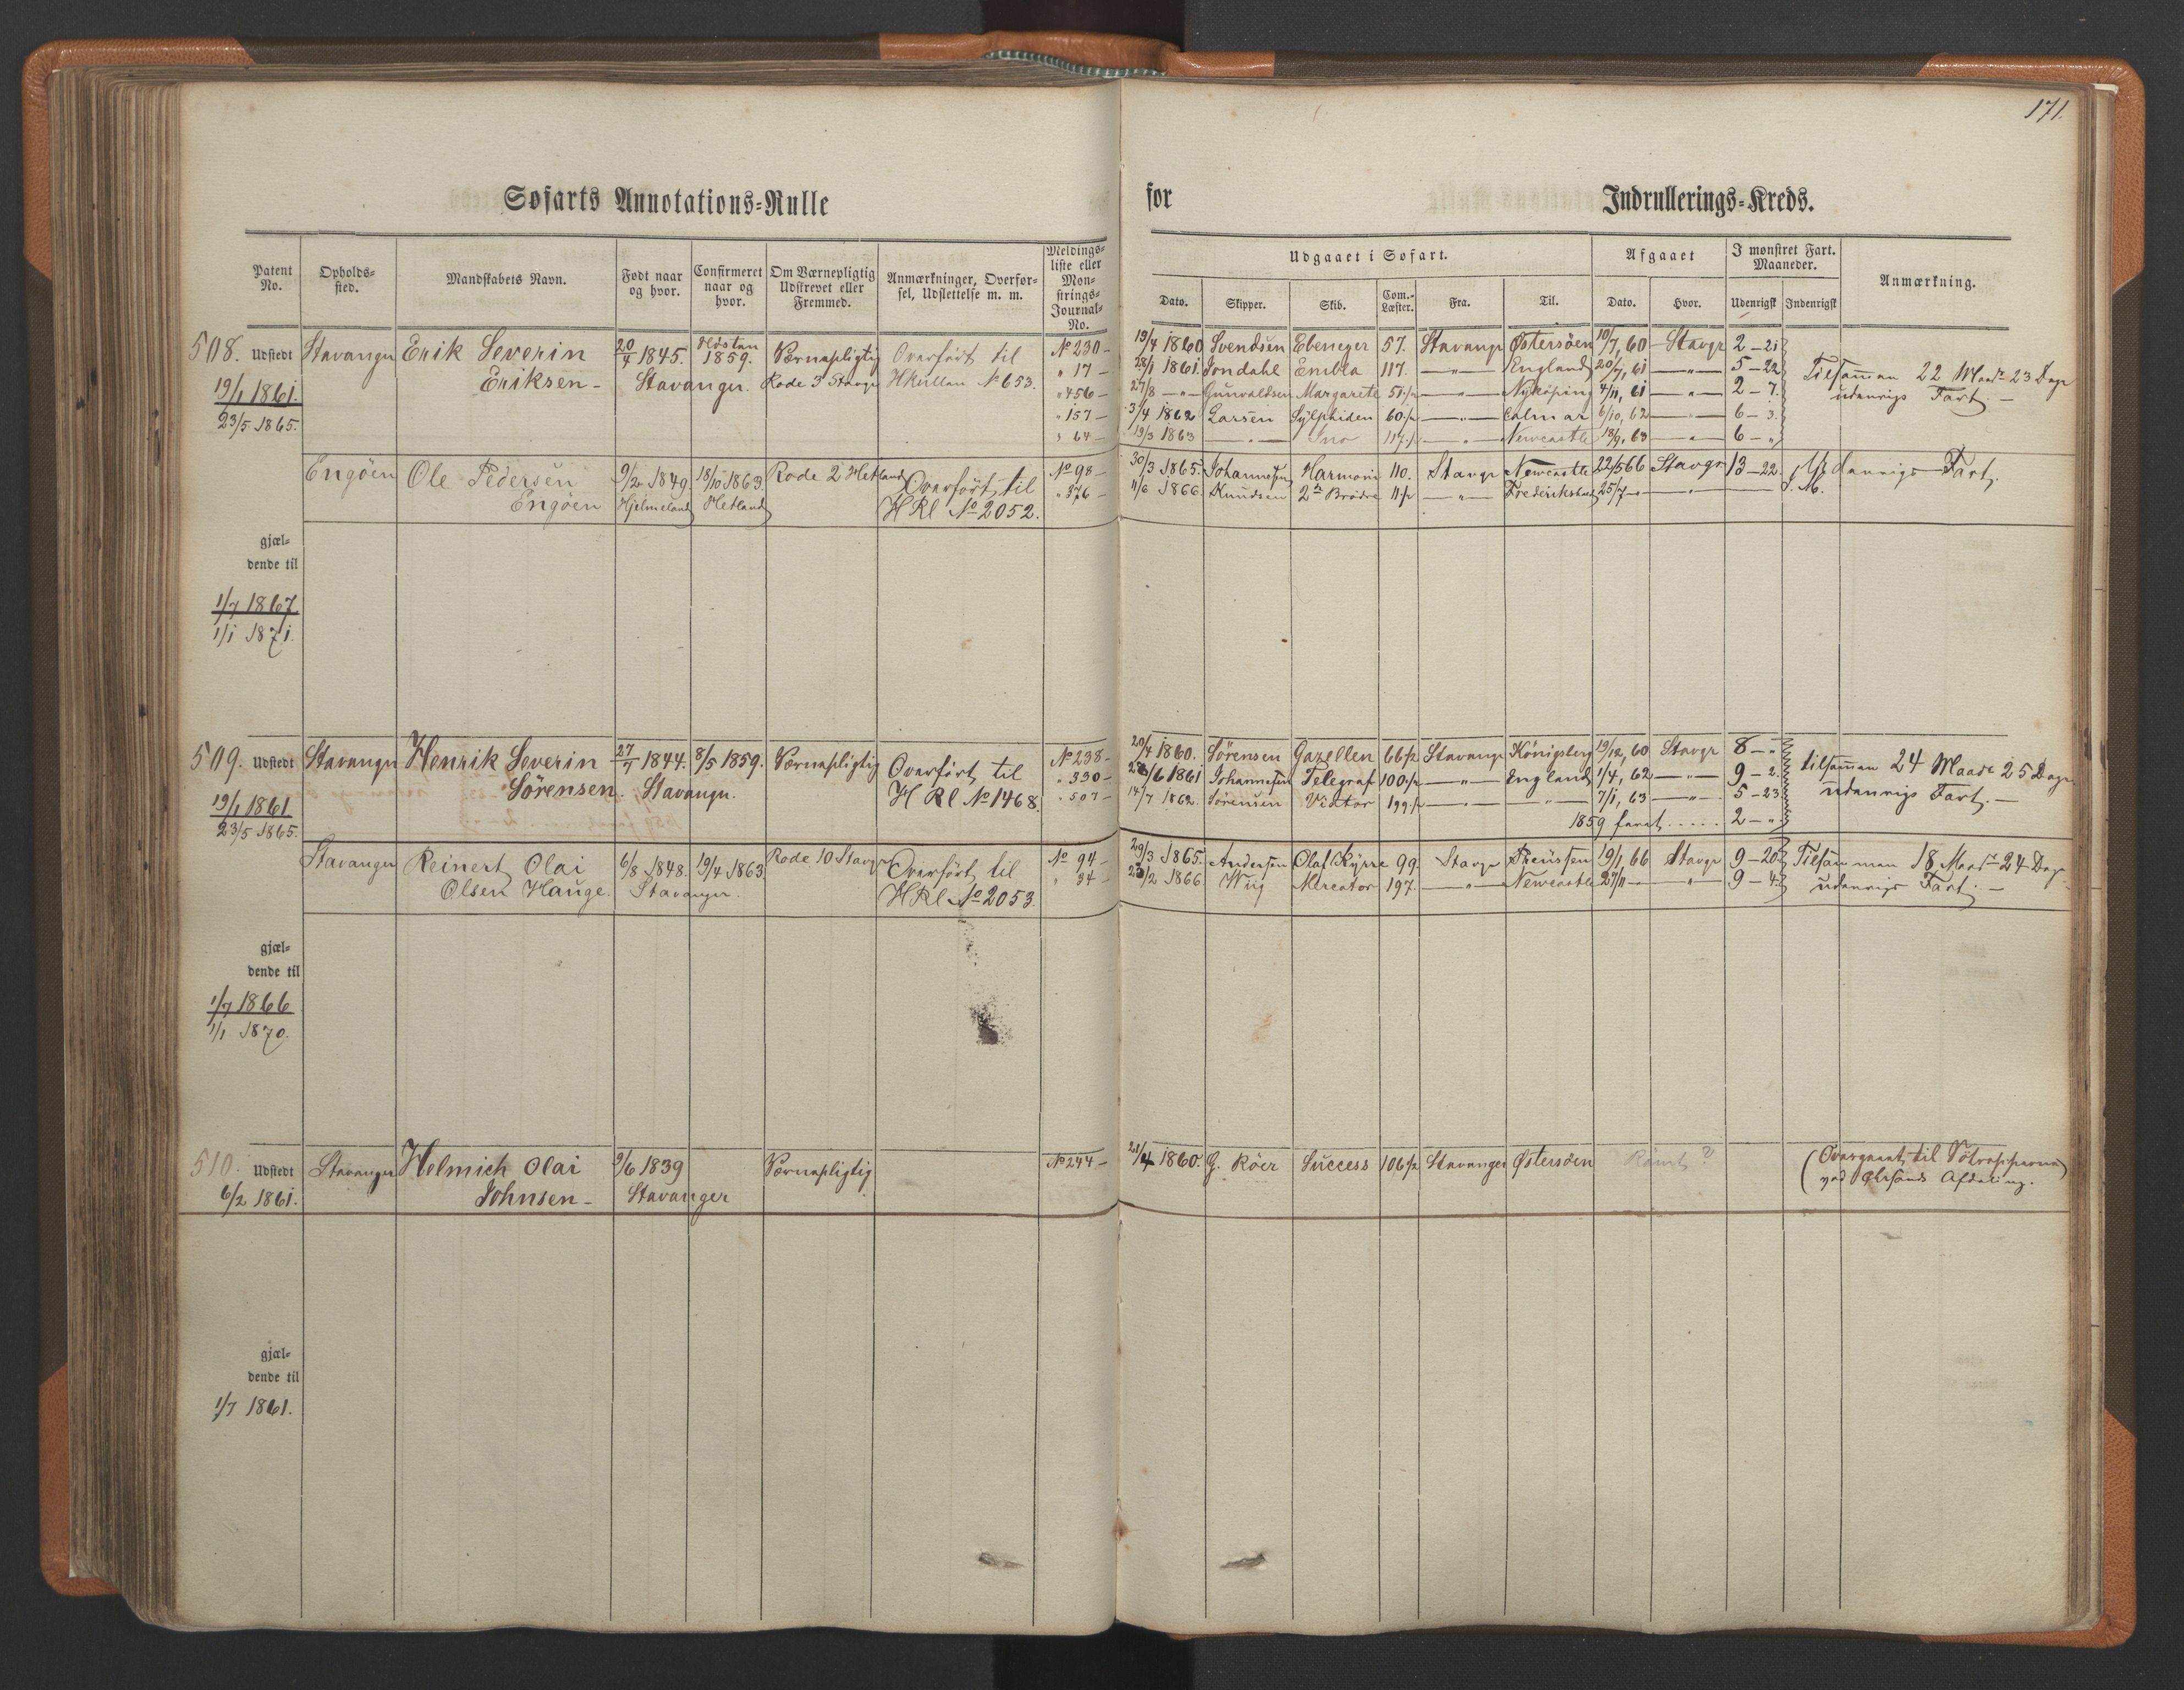 171.
Søfarts Annotations-Rulle
for Indrullerings-Kreds.
Patent No.
Opholds-sted.
Mandskabets Navn.
Født naar og hvor.
Confirmeret naar og hvor.
Om Værnepligtig Udskrevet eller Fremmed.
Anmærkninger, Overførsel, Udslettelse m. m.
Meldings-liste eller Mønstrings-Journal-No.
Udgaaet i Søfart.
Dato. Skipper. Skib. Com.-Læster. Fra. Til.
Afgaaet
Dato. Hvor.
I mønstret Fart. Maaneder.
Udenrigsk Indenrigsk
Anmærkning.
508. Udstedt Stavanger Erik Severin 20/4 1845. 1859. Værnepligtig Overført til № 230 -
19/1 1861. Eriksen - Stavanger. Rode 3 Stavgr HRullen № 653. " 17 -
23/5 1865. " 456 -
" 157 -
" 64 -
19/4 1860 Svendsen Ebenezer 57. Stavangr Østersøen 10/7, 60 - Stavgr 2 - 21
28/1 1861. Jondahl Embla 117. — " — England 20/7, 61 — " — 5 - 22
27/8 — " — Gunvaldsen Margarete 51 1/2 — " — Nykøping 4/11, 61 — " — 2 - 7.
3/4 1862 Larsen Sylphiden 60 1/2 — " — Calmar 6/10, 62 — " — 6 - 3.
19/3 1863 — " — Ino 117 1/2 — " — Newcastle 13/9, 63 — " — 6 - "
Tilsammen 22 Maadr 23 Dage
udenrigs Fart. -
Engøen Ole Pedersen 9/2 1849. 18/10 1863. Rode 2 Hetland Overført til № 98 -
Engøen Hjelmeland Hetland HRl № 2052. " 376 -
30/3 1865. Johannesen Harmoni 110. Stavgr Newcastle 22/5 66 Stavgr 13 - 22.
11/6 1866. Knudsen 2de Brødre 11 1/2 — " — 25/7 - — " —
Fart.
gjæl-
dende til
1/7 1867
1/1 1871.
509. Udstedt Stavanger Henrik Severin 27/7 1844. 8/5 1859. Værnepligtig Overført til № 238 -
19/1 1861. Sørensen. Stavanger. HRl № 1468. " 330 -
23/5 1865. " 507 -
20/4 1860. Sørensen Gazellen 66 1/2 Stavangr Königsberg 19/12, 60 Stavgr 8 - "
28/6 1861 Johannesen Telegraf 100 1/2 — " — England 1/4, 62 — " — 9 - 2.
14/7 1862. Sørensen Viator 199 1/2 — " — — " — 7/1, 63 — " — 5 - 23
1859 faret ..... 2 - "
tilsammen 24 Maadr 25 Dage
udenrigs Fart. -
Stavanger Reinert Olai 6/8 1848. 19/4 1863 Rode 10 Stavgr Overført til № 94 -
Olsen Hauge. Stavanger. HRl № 2053. " 34 -
29/3 1865. Andersen Olaf Kyrre 99. Stavgr Preussen 19/1, 66 Stavgr 9 - 20
23/2 1866. Wiig Mercator 197. — " — Newcastle 27/11 - " 9 - 4.
Tilsammen 18 Maadr 24 Dage
udenrigs Fart. -
gjæl-
dende til
1/7 1866
1/1 1870.
510. Udstedt Stavanger Helmich Olai 9/6 1839 Værnepligtig № 244 -
6/2 1861. Johnsen - Stavanger
21/4 1860. G. Röer Success 106 1/2 Stavanger Østersøen Römt ?
(Overgaaet til
ved Afdeling.
gjæl-
dende til
1/7 1861.